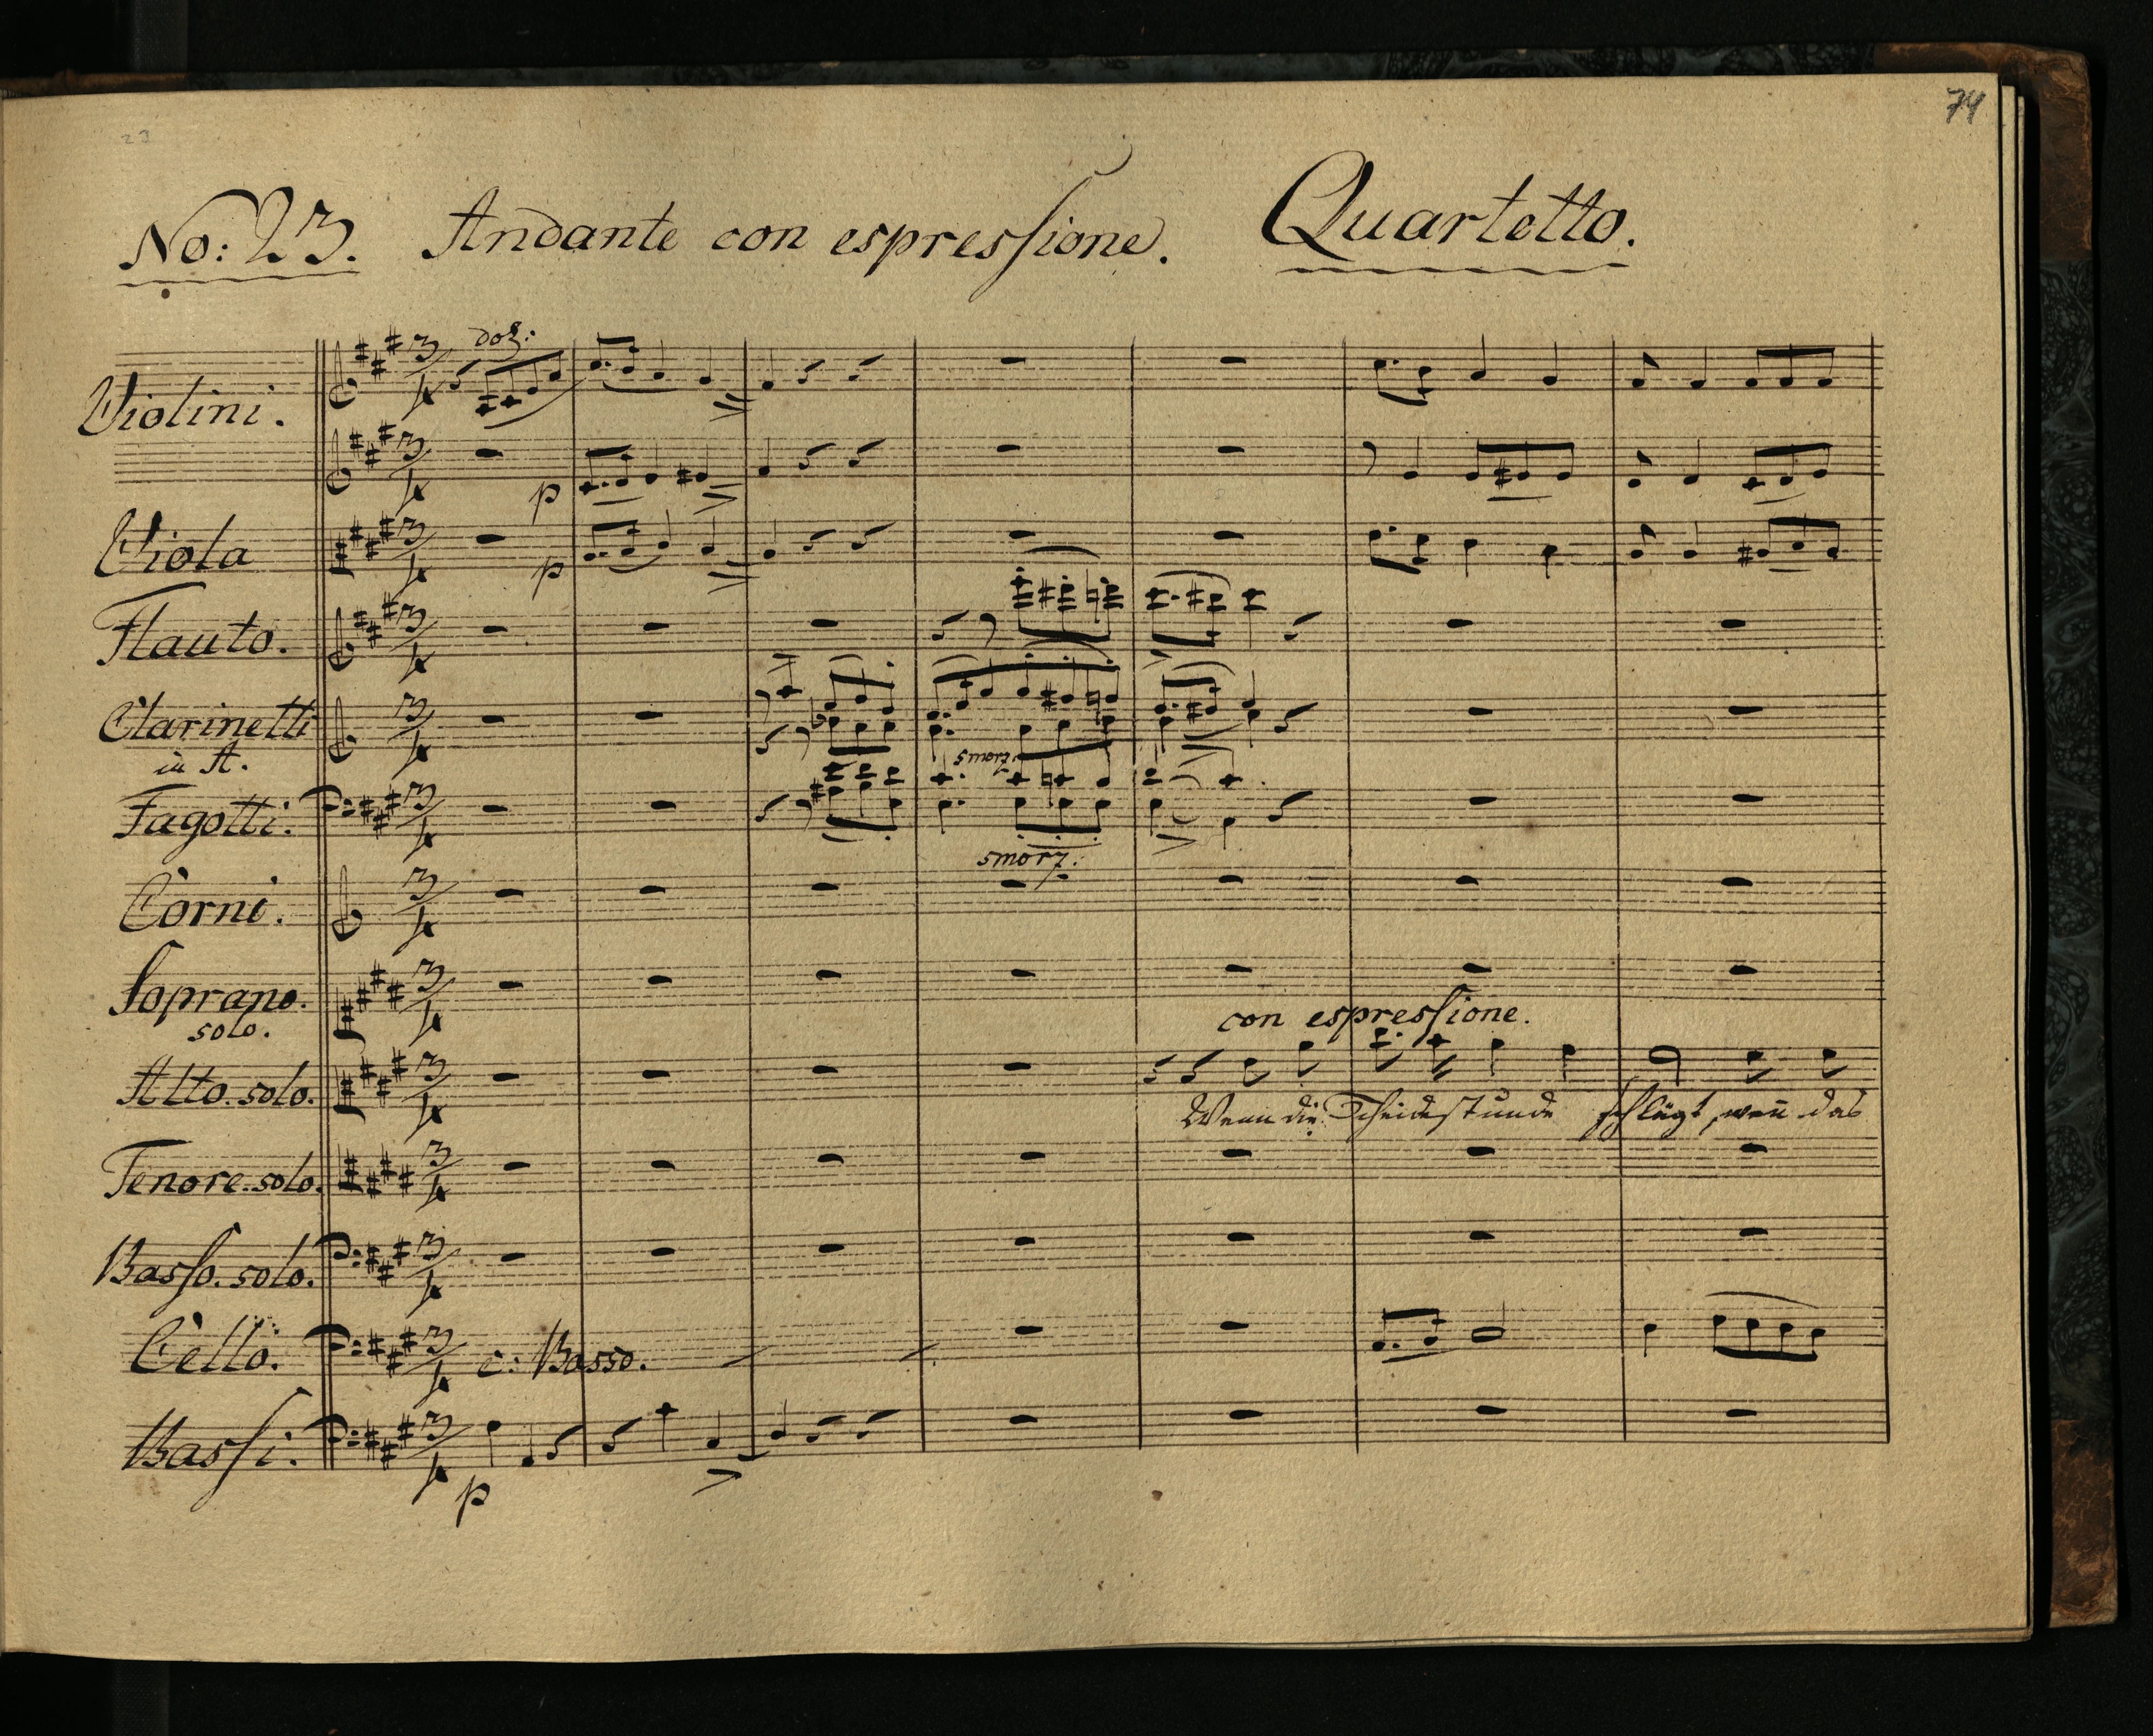 74
23
No: 23. Andante con espressione. Quartetto.
dol:
Violini.
p
Viola
p
Flauto.
Clarinetti
in A.
smorz.
Fagotti.
smorz.
Corni.
Soprano.
solo.
con espressione.
Alto. solo.
Wenn die Scheidestunde schlägt, wen̄ das
Tenore. solo.
Basso. solo.
Cello. c: Basso.
Bassi.
p